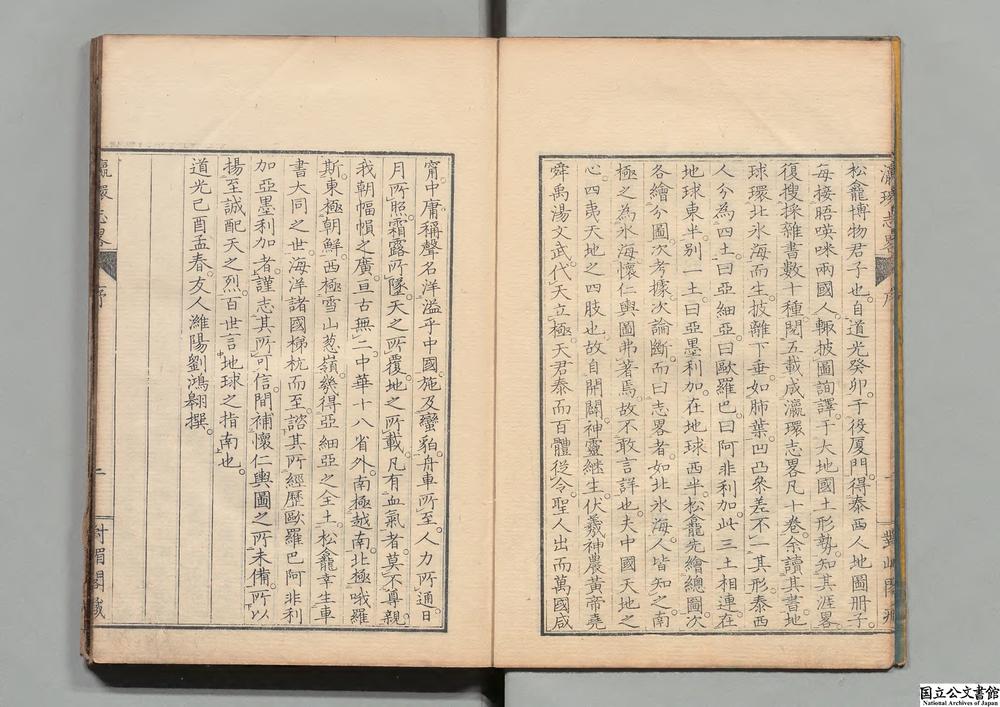 松龕博物君子也。自道光癸卯。于役厦門。得泰西人地圖冊子。
每接晤𠸄咪兩國人。輒披圖詢譯。于大地國土形勢。知其涯畧。
復搜採雜書數十種。閱五載成瀛環志畧凡十卷。余讀其書。地
球環北氷海而生。披離下垂。如肺葉。凹凸參差不一其形。泰西
人分為四土。曰亞細亞。曰歐羅巴。曰阿非利加。此三土相連。在
地球東半。别一土。曰亞墨利加。在地球西半。松龕先繪總圖。次
各繪分圖。次考據。次論斷。而曰志畧者。如北氷海。人皆知之。南
極之為氷海。懷仁輿圖弗著焉。故不敢言詳也。夫中國天地之
心。四夷天地之四肢也。故自開闢。神靈継生。伏羲神農黄帝堯
舜禹湯文武。代天立極。天君泰而百體從令。聖人出而萬國咸
甯。中庸稱聲名洋溢乎中國。施及蠻貊。舟車所至。人力所通。日
月所照。霜露所墜。天之所覆。地之所載。凡有血氣者。莫不尊親。
我朝幅㡧之廣。亘古無二。中華十八省外。南極越南。北極哦羅
斯。東極朝鮮。西極雪山葱嶺。幾得亞細亞之全土。松龕幸生車
書大同之世。海洋諸國梯杭而至。諮其所經歷歐羅巴阿非利
加亞墨利加者。謹志其所可信。間補懷仁輿圖之所未備。所以
揚至誠配天之烈。百世言地球之指南也。
道光己酉孟春。友人濰陽劉鴻翱撰。
瀛環志畧
序
二
對嵋閣藏
国立公文書館
National Archives of Japan